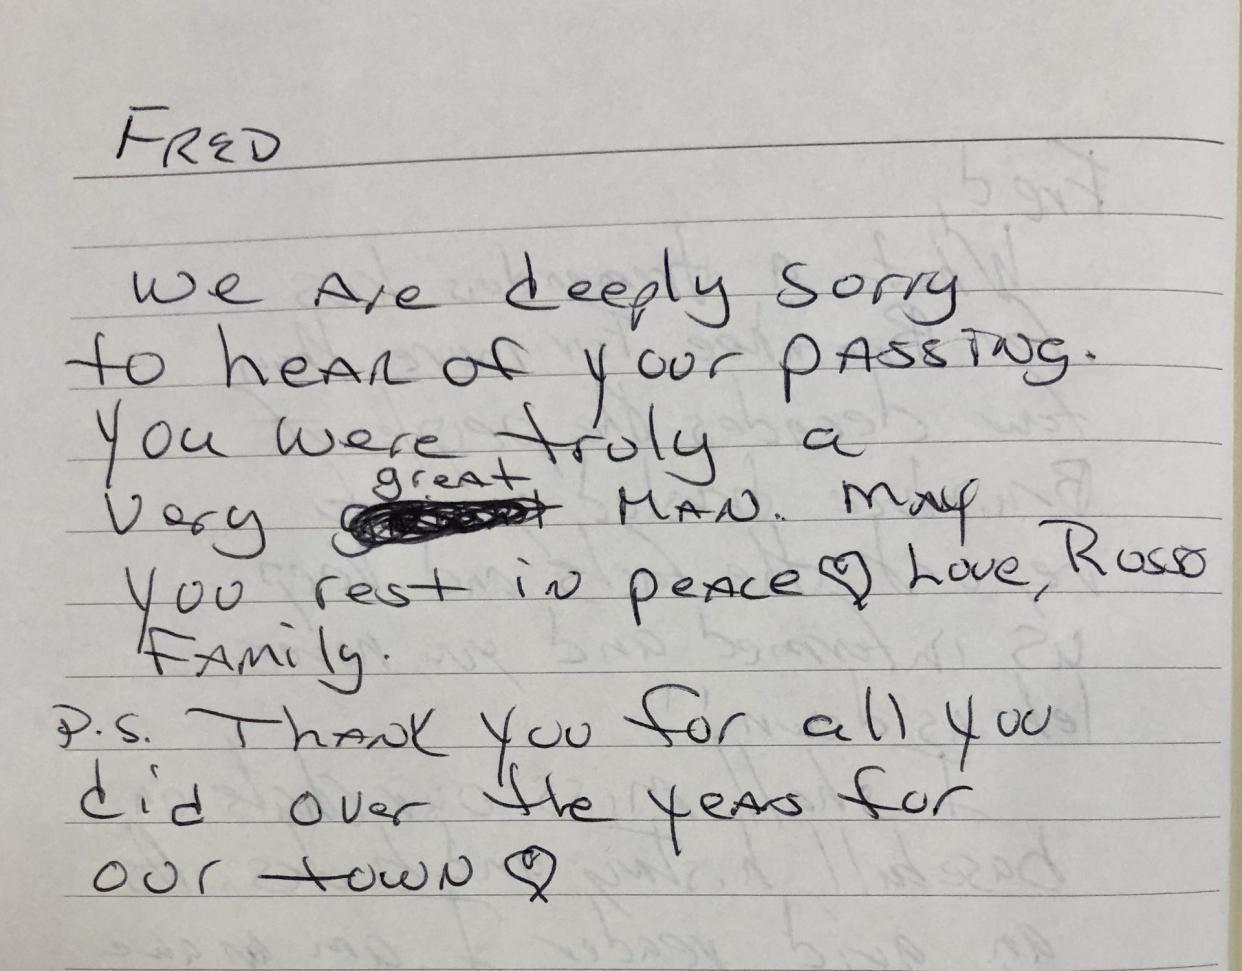 FRED
we Are deeply sorry
to heAR of your pASSING.
you were truly a
very great MAN. MAy
you rest in peAce ♡ Love, Rosso
FAMily.
P.S. ThANK you for all you
did over the yeArs for
our towN ♡